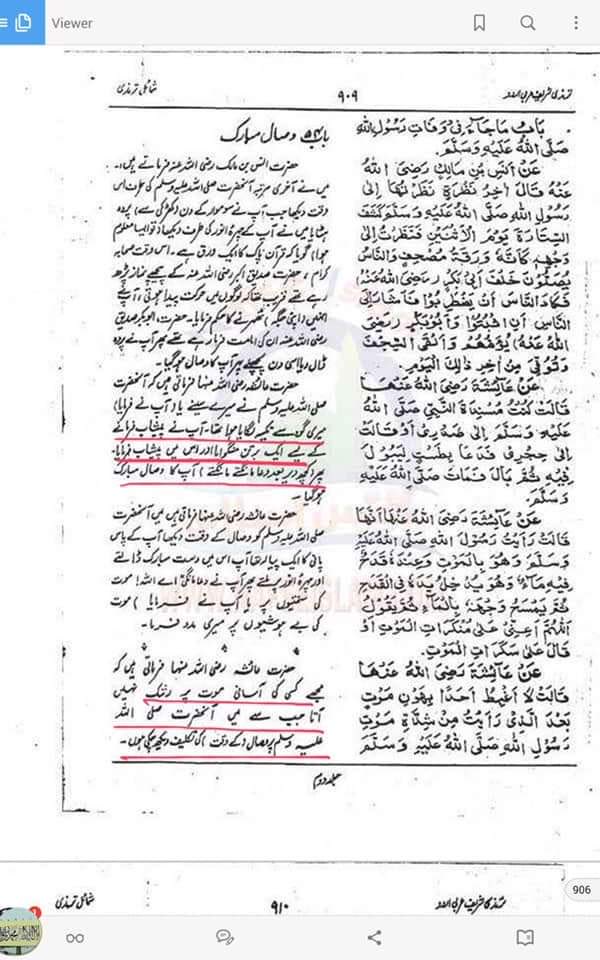 Viewer
ترمذی شریف عربی اردو
۹۰۹
شمائل ترمذی
بَابُ مَا جَاءَ فِي وَفَاتِ رَسُولِ اللهِ
صَلَّى اللهُ عَلَيْهِ وَسَلَّمَ.
عَنْ أَنَسِ بْنِ مَالِكٍ رَضِيَ اللهُ
عَنْهُ قَالَ اٰخِرُ نَظْرَةٍ نَظَرْتُهَا إِلَى
رَسُولِ اللهِ صَلَّى اللهُ عَلَيْهِ وَسَلَّمَ كَشَفَ
السِّتَارَةَ يَوْمَ الْاِثْنَيْنِ فَنَظَرْتُ إِلَى
وَجْهِهِ كَأَنَّهُ وَرَقَةُ مُصْحَفٍ وَالنَّاسُ
يُصَلُّونَ خَلْفَ أَبِي بَكْرٍ رَضِيَ اللهُ عَنْهُ
فَكَادَ النَّاسُ أَنْ يَضْطَرِبُوا فَأَشَارَ إِلَى
النَّاسِ أَنِ اثْبُتُوا وَأَبُو بَكْرٍ رَضِيَ
اللهُ عَنْهُ يَؤُمُّهُمْ وَأَلْقَى السِّجْفَ
وَتُوُفِّيَ مِنْ اٰخِرِ ذَالِكَ الْيَوْمِ.
عَنْ عَائِشَةَ رَضِيَ اللهُ عَنْهَا
قَالَتْ كُنْتُ مُسْنِدَةً النَّبِيَّ صَلَّى اللهُ
عَلَيْهِ وَسَلَّمَ إِلَى صَدْرِي أَوْ قَالَتْ
إِلَى حِجْرِي فَدَعَا بِطَسْتٍ لِيَبُوْلَ
فِيْهِ ثُمَّ بَالَ فَمَاتَ صَلَّى اللهُ عَلَيْهِ
وَسَلَّمَ.
عَنْ عَائِشَةَ رَضِيَ اللهُ عَنْهَا أَنَّهَا
قَالَتْ رَأَيْتُ رَسُولَ اللهِ صَلَّى اللهُ عَلَيْهِ
وَسَلَّمَ وَهُوَ بِالْمَوْتِ وَعِنْدَهُ قَدَحٌ
فِيْهِ مَاءٌ وَهُوَ يُدْخِلُ يَدَهُ فِي الْقَدَحِ
ثُمَّ يَمْسَحُ وَجْهَهُ بِالْمَاءِ ثُمَّ يَقُوْلُ
اَللّٰهُمَّ أَعِنِّي عَلَى مُنْكَرَاتِ الْمَوْتِ أَوْ
قَالَ عَلَى سَكَرَاتِ الْمَوْتِ.
عَنْ عَائِشَةَ رَضِيَ اللهُ عَنْهَا
قَالَتْ لَا أَغْبِطُ أَحَدًا بِهَوْنِ مَوْتٍ
بَعْدَ الَّذِي رَأَيْتُ مِنْ شِدَّةِ مَوْتِ
رَسُولِ اللهِ صَلَّى اللهُ عَلَيْهِ وَسَلَّمَ
وصال مبارک
حضرت انس بن مالک رضی اللہ عنہ فرماتے ہیں۔
میں نے آخری مرتبہ آنحضرت صلی اللہ علیہ وسلم کی طرف اس
وقت دیکھا جب آپ نے سوموار کے دن (کھڑکی سے) پردہ
ہٹایا میں نے آپ کے چہرۂ انور کی طرف دیکھا تو ایسا معلوم
ہوا گویا کہ قرآن پاک کا ایک ورق ہے۔ اس وقت صحابہ
کرام، حضرت صدیق اکبر رضی اللہ عنہ کے پیچھے نماز پڑھ
رہے تھے قریب تھا کہ لوگوں میں حرکت پیدا ہوتی، آپ نے
انہیں (اپنی جگہ) ٹھہرنے کا حکم فرمایا۔ حضرت ابوبکر صدیق
رضی اللہ عنہ ان کی امامت فرما رہے تھے پھر آپ نے پردہ
ڈال دیا اسی دن پچھلے پہر آپ کا وصال ہوگیا۔
حضرت عائشہ رضی اللہ عنہا فرماتی ہیں کہ آنحضرت
صلی اللہ علیہ وسلم نے میرے سینے یا (آپ نے فرمایا)
میری گود سے تکیہ لگایا ہوا تھا، آپ نے پیشاب فرمانے
کے لیے ایک برتن منگوایا اور اس میں پیشاب فرمایا،
پھر کچھ دیر بعد (دعا مانگتے مانگتے) آپ کا وصال مبارک
ہوگیا۔
حضرت عائشہ رضی اللہ عنہا فرماتی ہیں میں آنحضرت
صلی اللہ علیہ وسلم کو وصال کے وقت دیکھا آپ کے پاس
پانی کا ایک پیالہ تھا آپ اس میں دست مبارک ڈالتے
اور چہرہ انور پر ملتے پھر آپ نے دعا مانگی اے اللہ! موت
کی سختیوں پر یا آپ نے فرمایا (موت
کی بے ہوشیوں پر میری مدد فرما۔
حضرت عائشہ رضی اللہ عنہا فرماتی ہیں کہ
مجھے کسی کی آسانی موت پر رشک نہیں
آتا جب سے میں آنحضرت صلی اللہ
علیہ وسلم پر وصال (کے وقت) کی تکلیف دیکھ چکی ہوں۔
جلد دوم
906
شمائل ترمذی
۹۱۰
ترمذی شریف عربی اردو